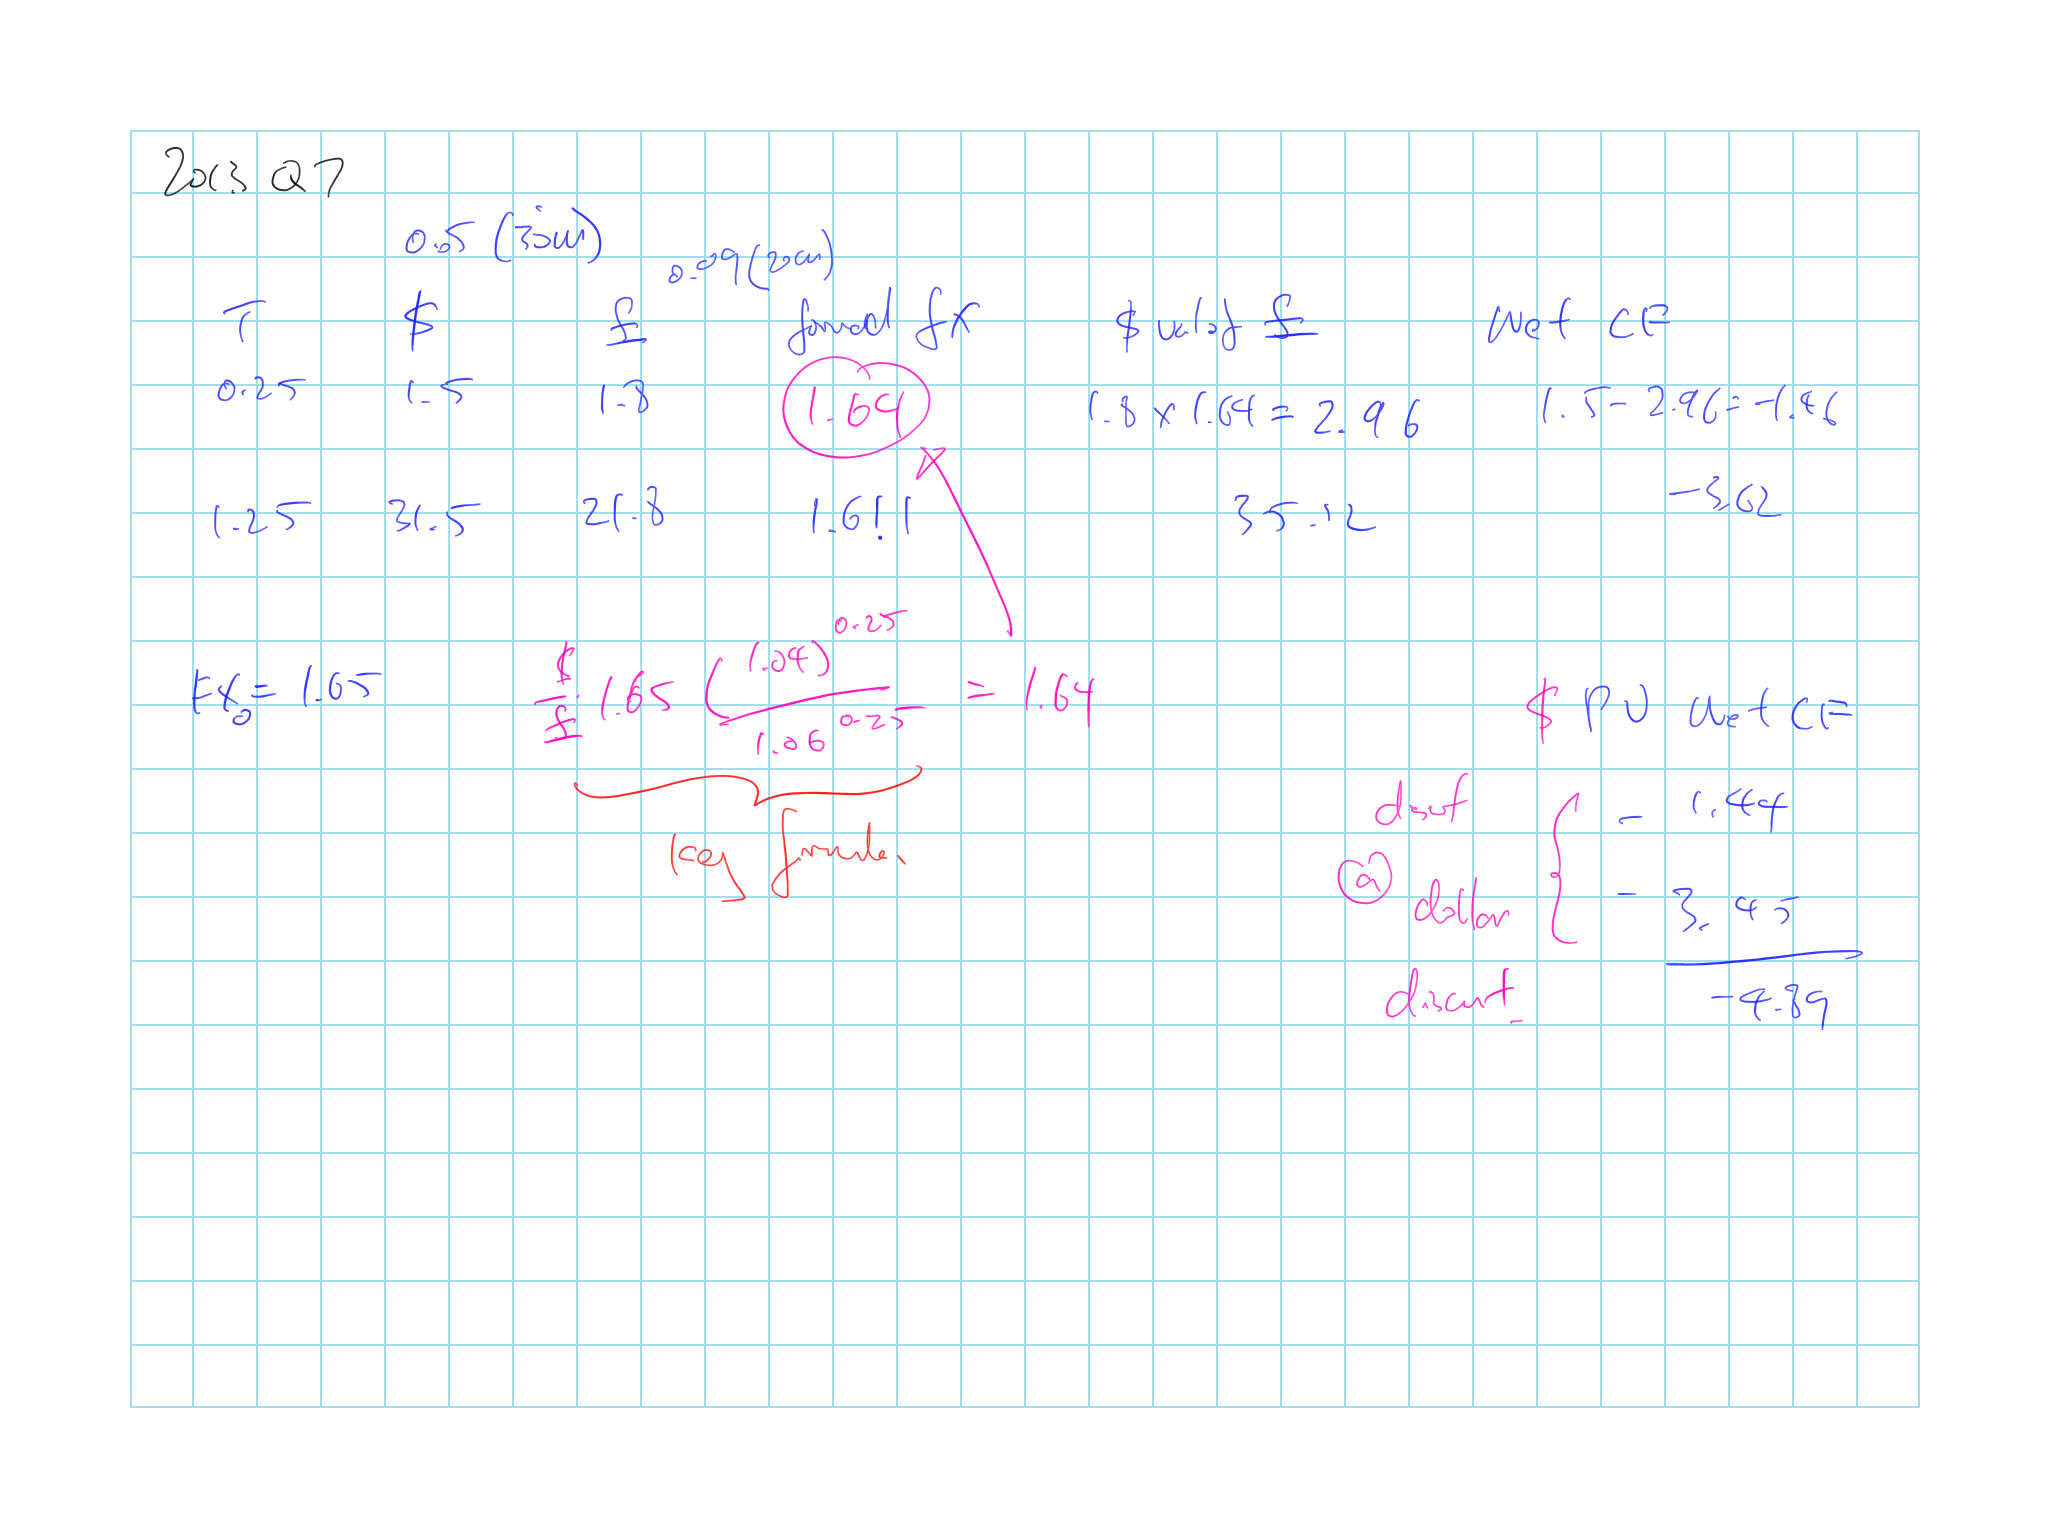 2013 Q7
0.05 (30m)
0.09 (20m)
T $ £ forward fx $ val of £ Net CF
0.25 1.5 1.8 1.64 1.8 x 1.64 = 2.96 1.5 - 2.96 = -1.46
1.25 31.5 21.8 1.611 35.12 -3.62
FX0 = 1.65 $/£ 1.65 (1.04)^0.25 / 1.06^0.25 = 1.64
key formula.
$ PV Net CF
- 1.44
@ dollar - 3.45
discount -4.89